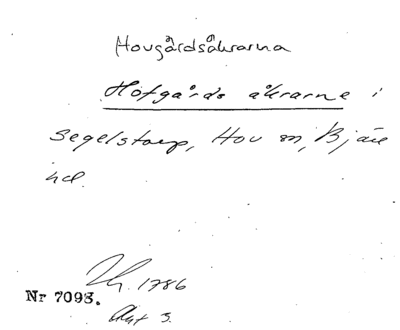 Hovgårdsåkrarna
Hofgårds åkrarne i
Segelstorp, Hov sn, Bjäre
hd.
1786
Nr 7093.
Akt 3.